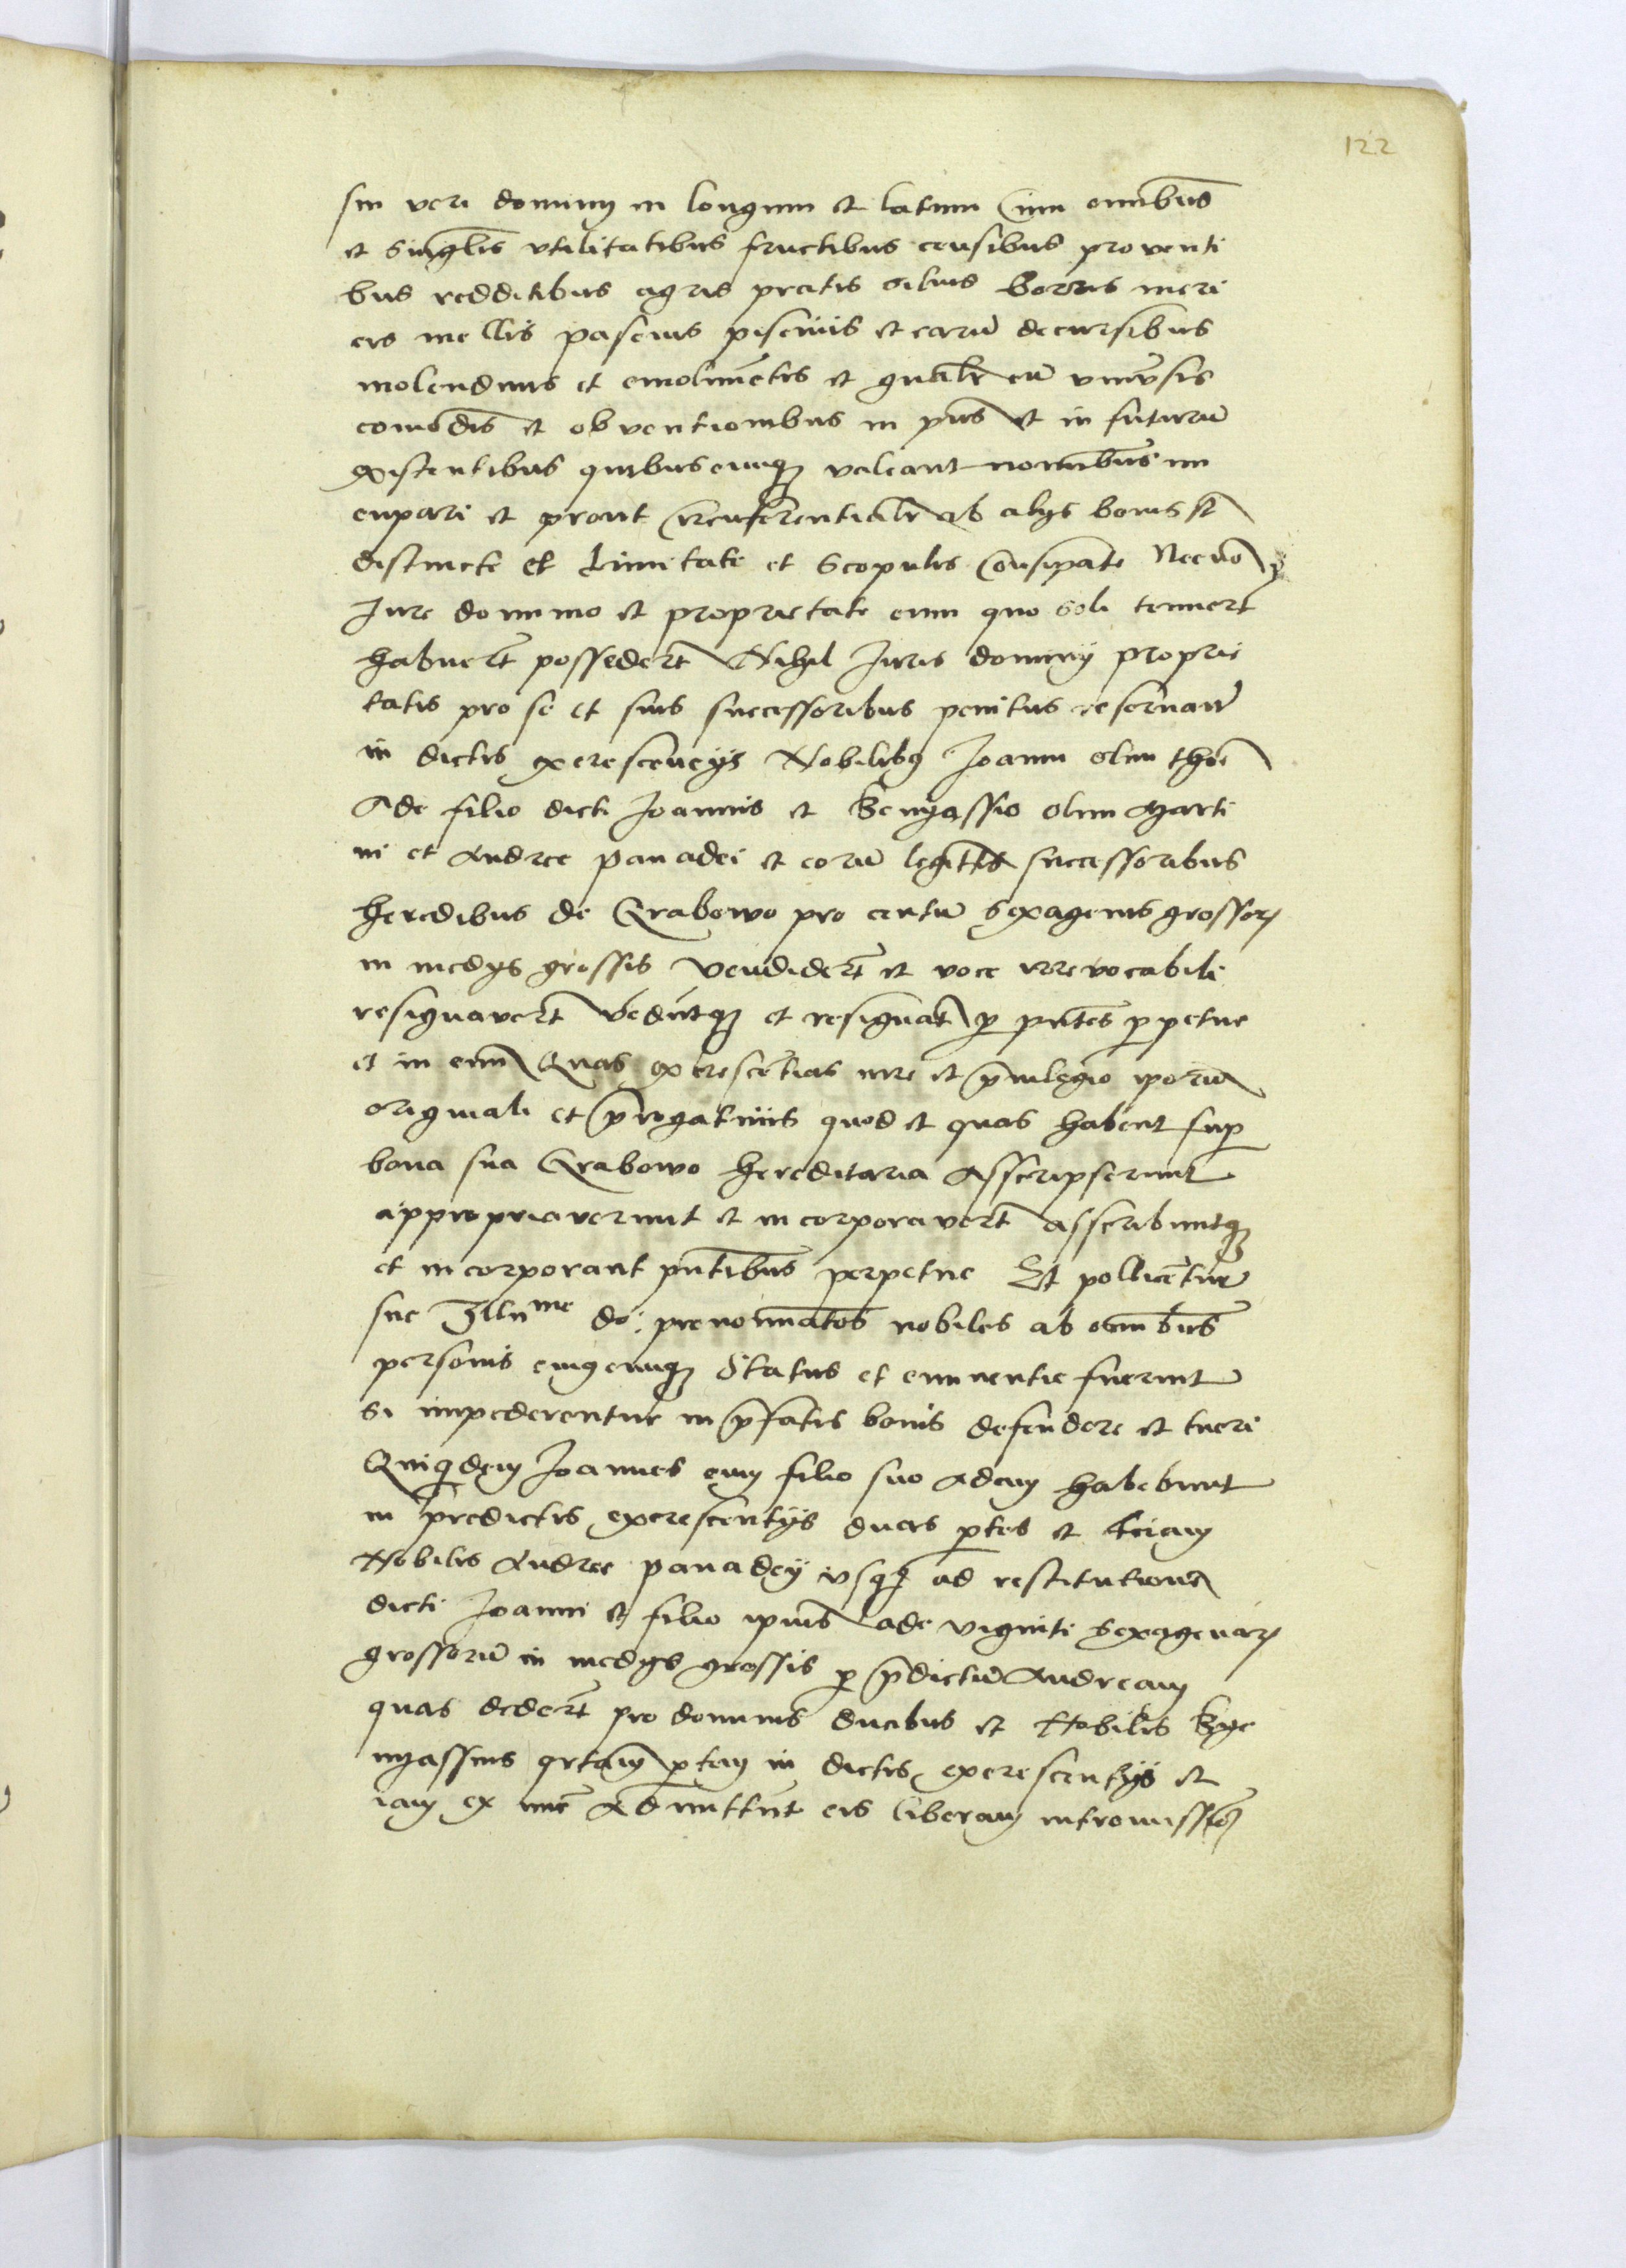 122
sui veri dominij in longum et latum Cum omnibus
et singlis vtilitatibus fructibus censibus proventi
bus redditibus agris pratis siluis borris meri
cis mellis pascuis piscinis et earū decursibus
molendinis et emolimētis et gnalr cū vniv̄sis
comodis et obventionibus in pn̄s et in futurū
existentibus quibuscunqȝ valeant nominibus nu
cupari et prout circūferentialr ab alijs bonis st
distincte et limitate et scopulis Consipate Necnō
Iure dominio et proprietate cum quo soli tenuert
habuert possedert Nihil Iuris dominij proprie
tatis pro se et suis successoribus penitus reseruan̄
in dictis excrescencijs Nobilibꝰ Joanni olim thē
Ade filio dicti Joannis et Bo
ni et Andree panadei et eorū legittis successoribus
heredibus de Grabowo pro centū sexagenis grossorꝝ
in medijs grossis vendidert et voce irrevocabili
resignavert vēdūtqȝ et resignāt ꝑ pn̄tes ꝑpetue
et in evū Quas excrescētias iure et p̄uilegio ipōrū
originali et p̄rogatiuis quod et quas habent suꝑ
bona sua Grabowo hereditaria Asscripserunt
appropriaverunt et incorporavert asscribuntqȝ
et incorporant pn̄tibus perpetue Et pollicētur
sue Illu me do: prenomīatos nobiles ab omnibus
personis cuiꝰcunqȝ status et eminentie fuerint
si impederentur in p̄fatis bonis defendere et tueri
Quiquidem Joannes cum filio suo Adam habebunt
in predictis excrescentijs duas ꝑtes et tciam
Nobilis Andree panadey vsqȝ ad restitutionē
dicti Joanni et filio ipius ade viginti sexagenarꝝ
grossorū in medijs grossis ꝑ p̄dictū Andream
quas dedert pro dominis ducibus et Nobilis
qrtam ꝑtem in dictis excrescentijs et
iam ex nūc Admittūt eis liberam intromissioē